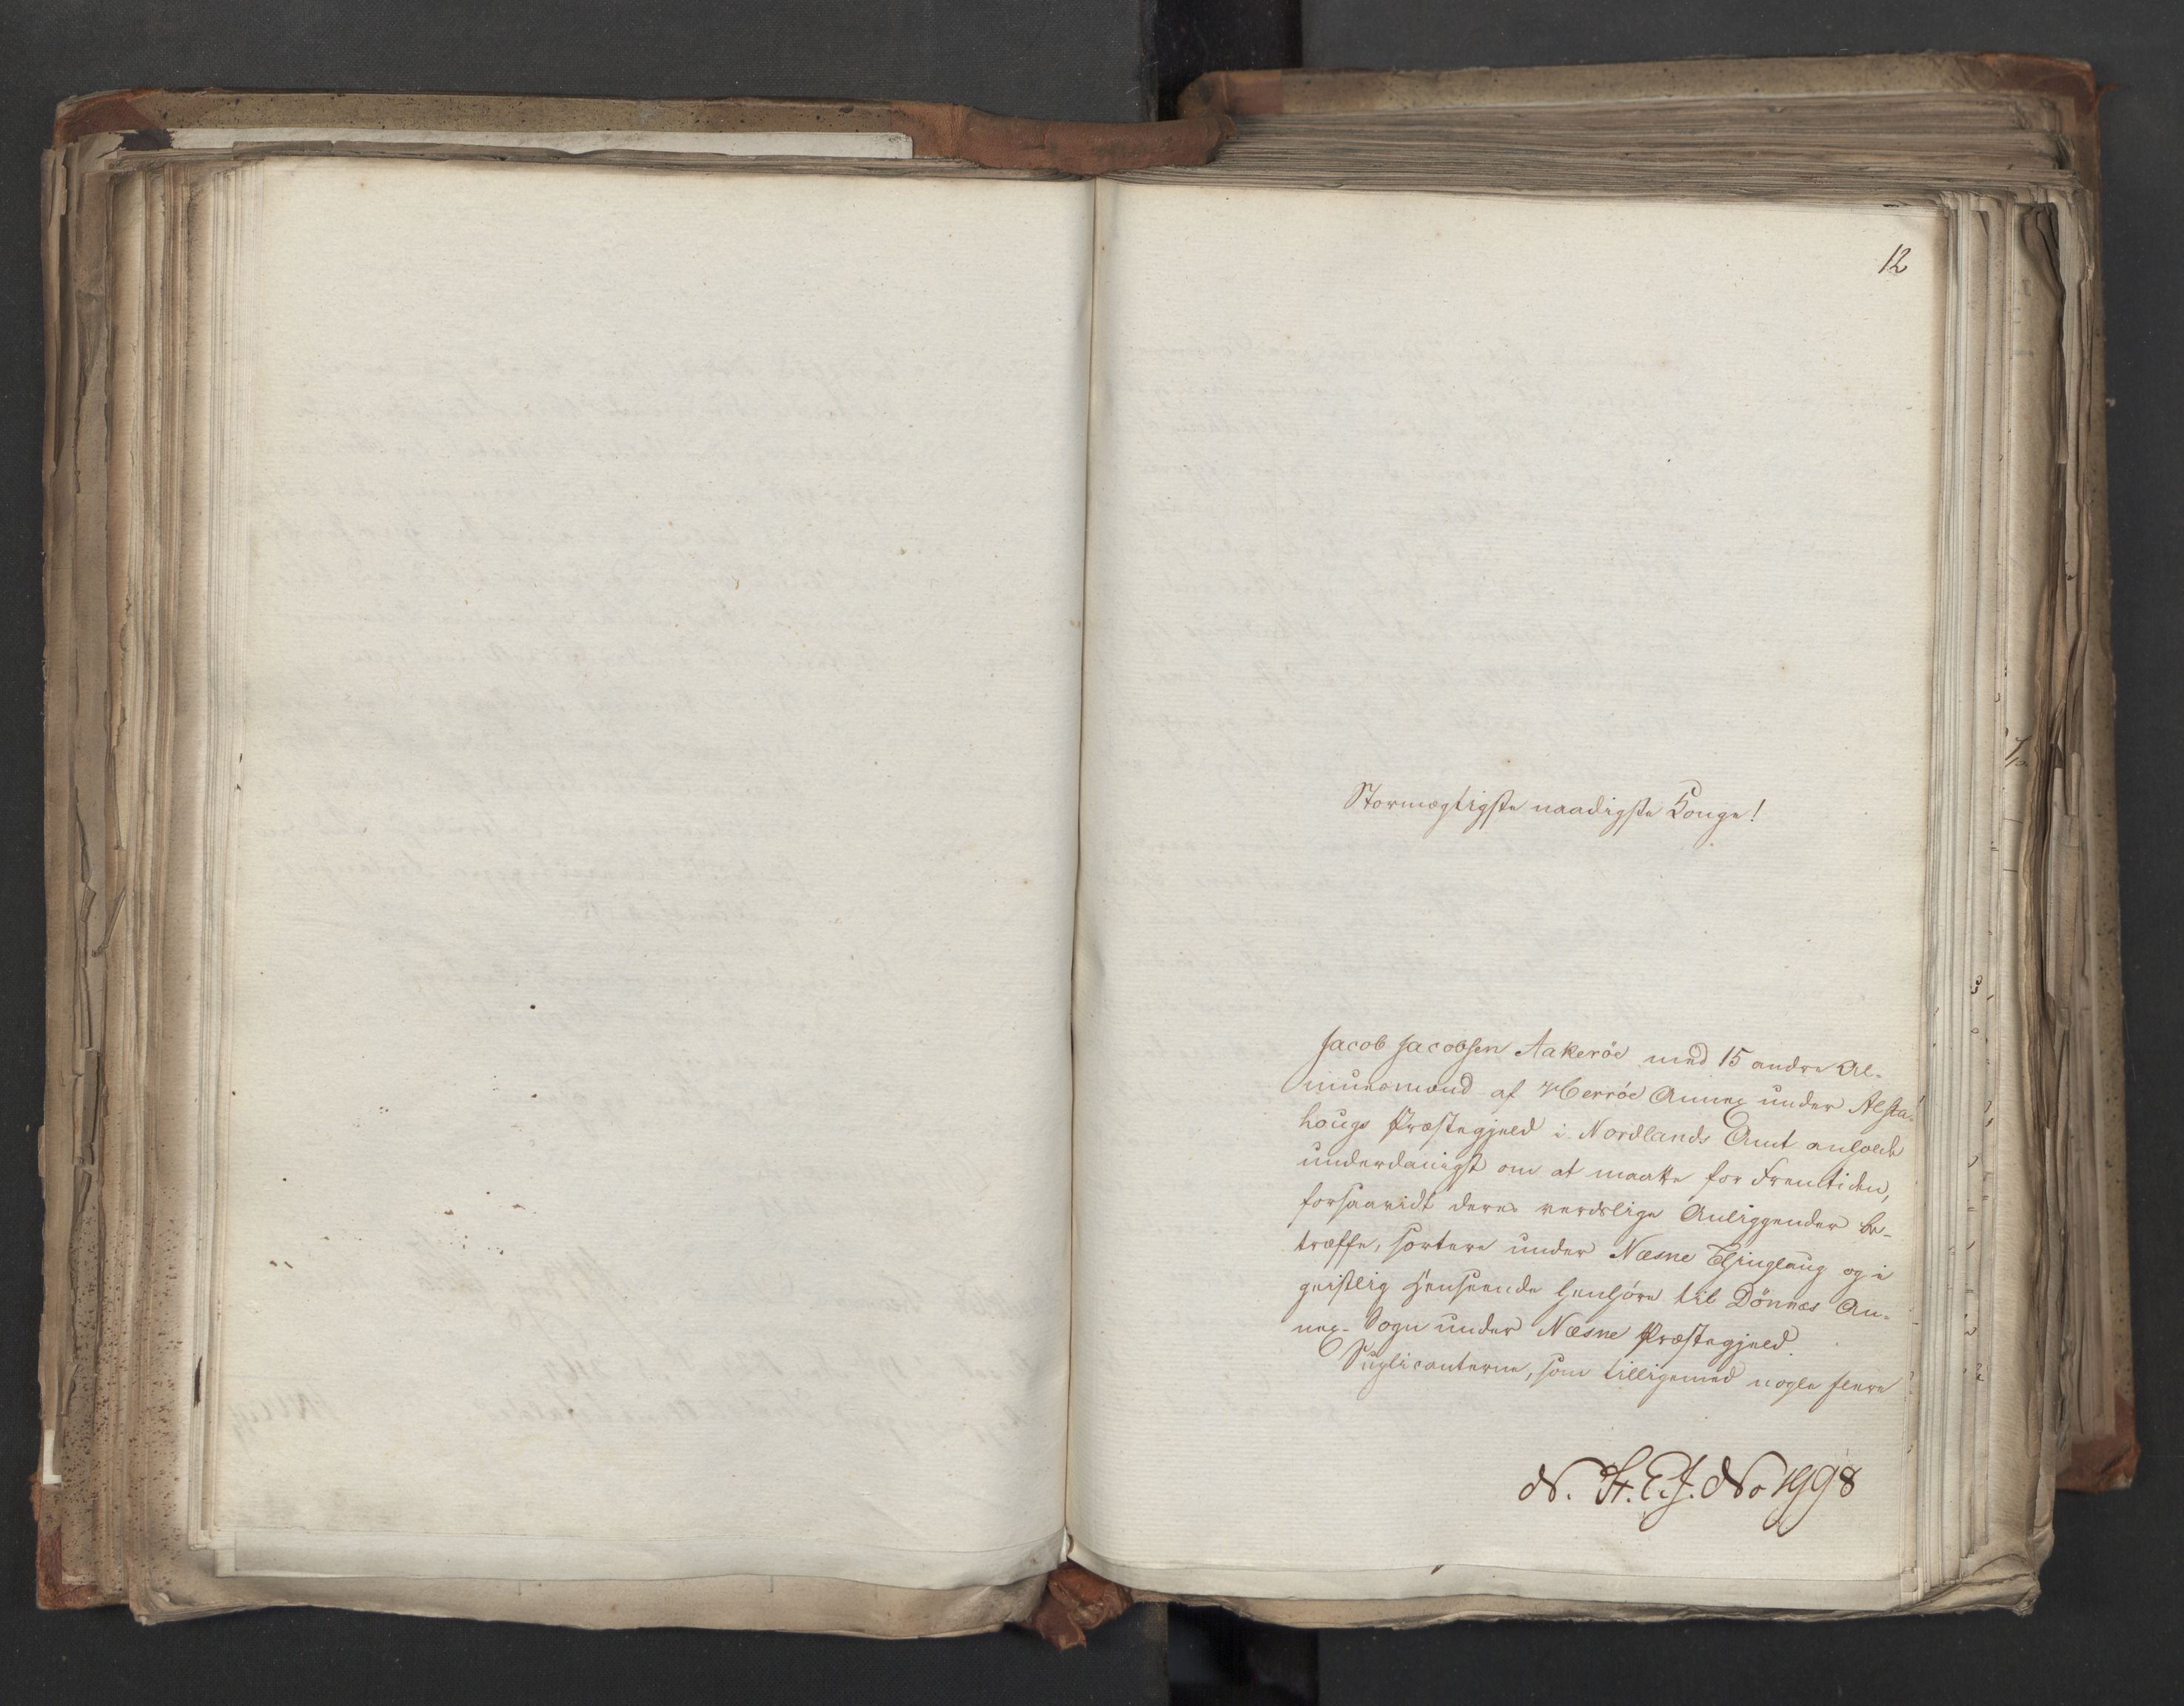 12
Stormægtigste naadigste Konge!
Jacob Jacobsen Aakeröe med 15 andre Al-
muesmænd af Herröe Annex under Alsta-
hougs Præstegjeld i Nordlands Amt anholdt
underdanigst om at maatte for Fremtiden,
forsaavidt deres verdslige Anliggender be-
træffe, sortere under Næsne Thinglaug og i
geistlig Henseende henhöre til Dönnæs An-
nex-Sogn under Næsne Præstegjeld.
Suplicanterne, som tilligemed nogle flere
N. St. E. J. No 1998